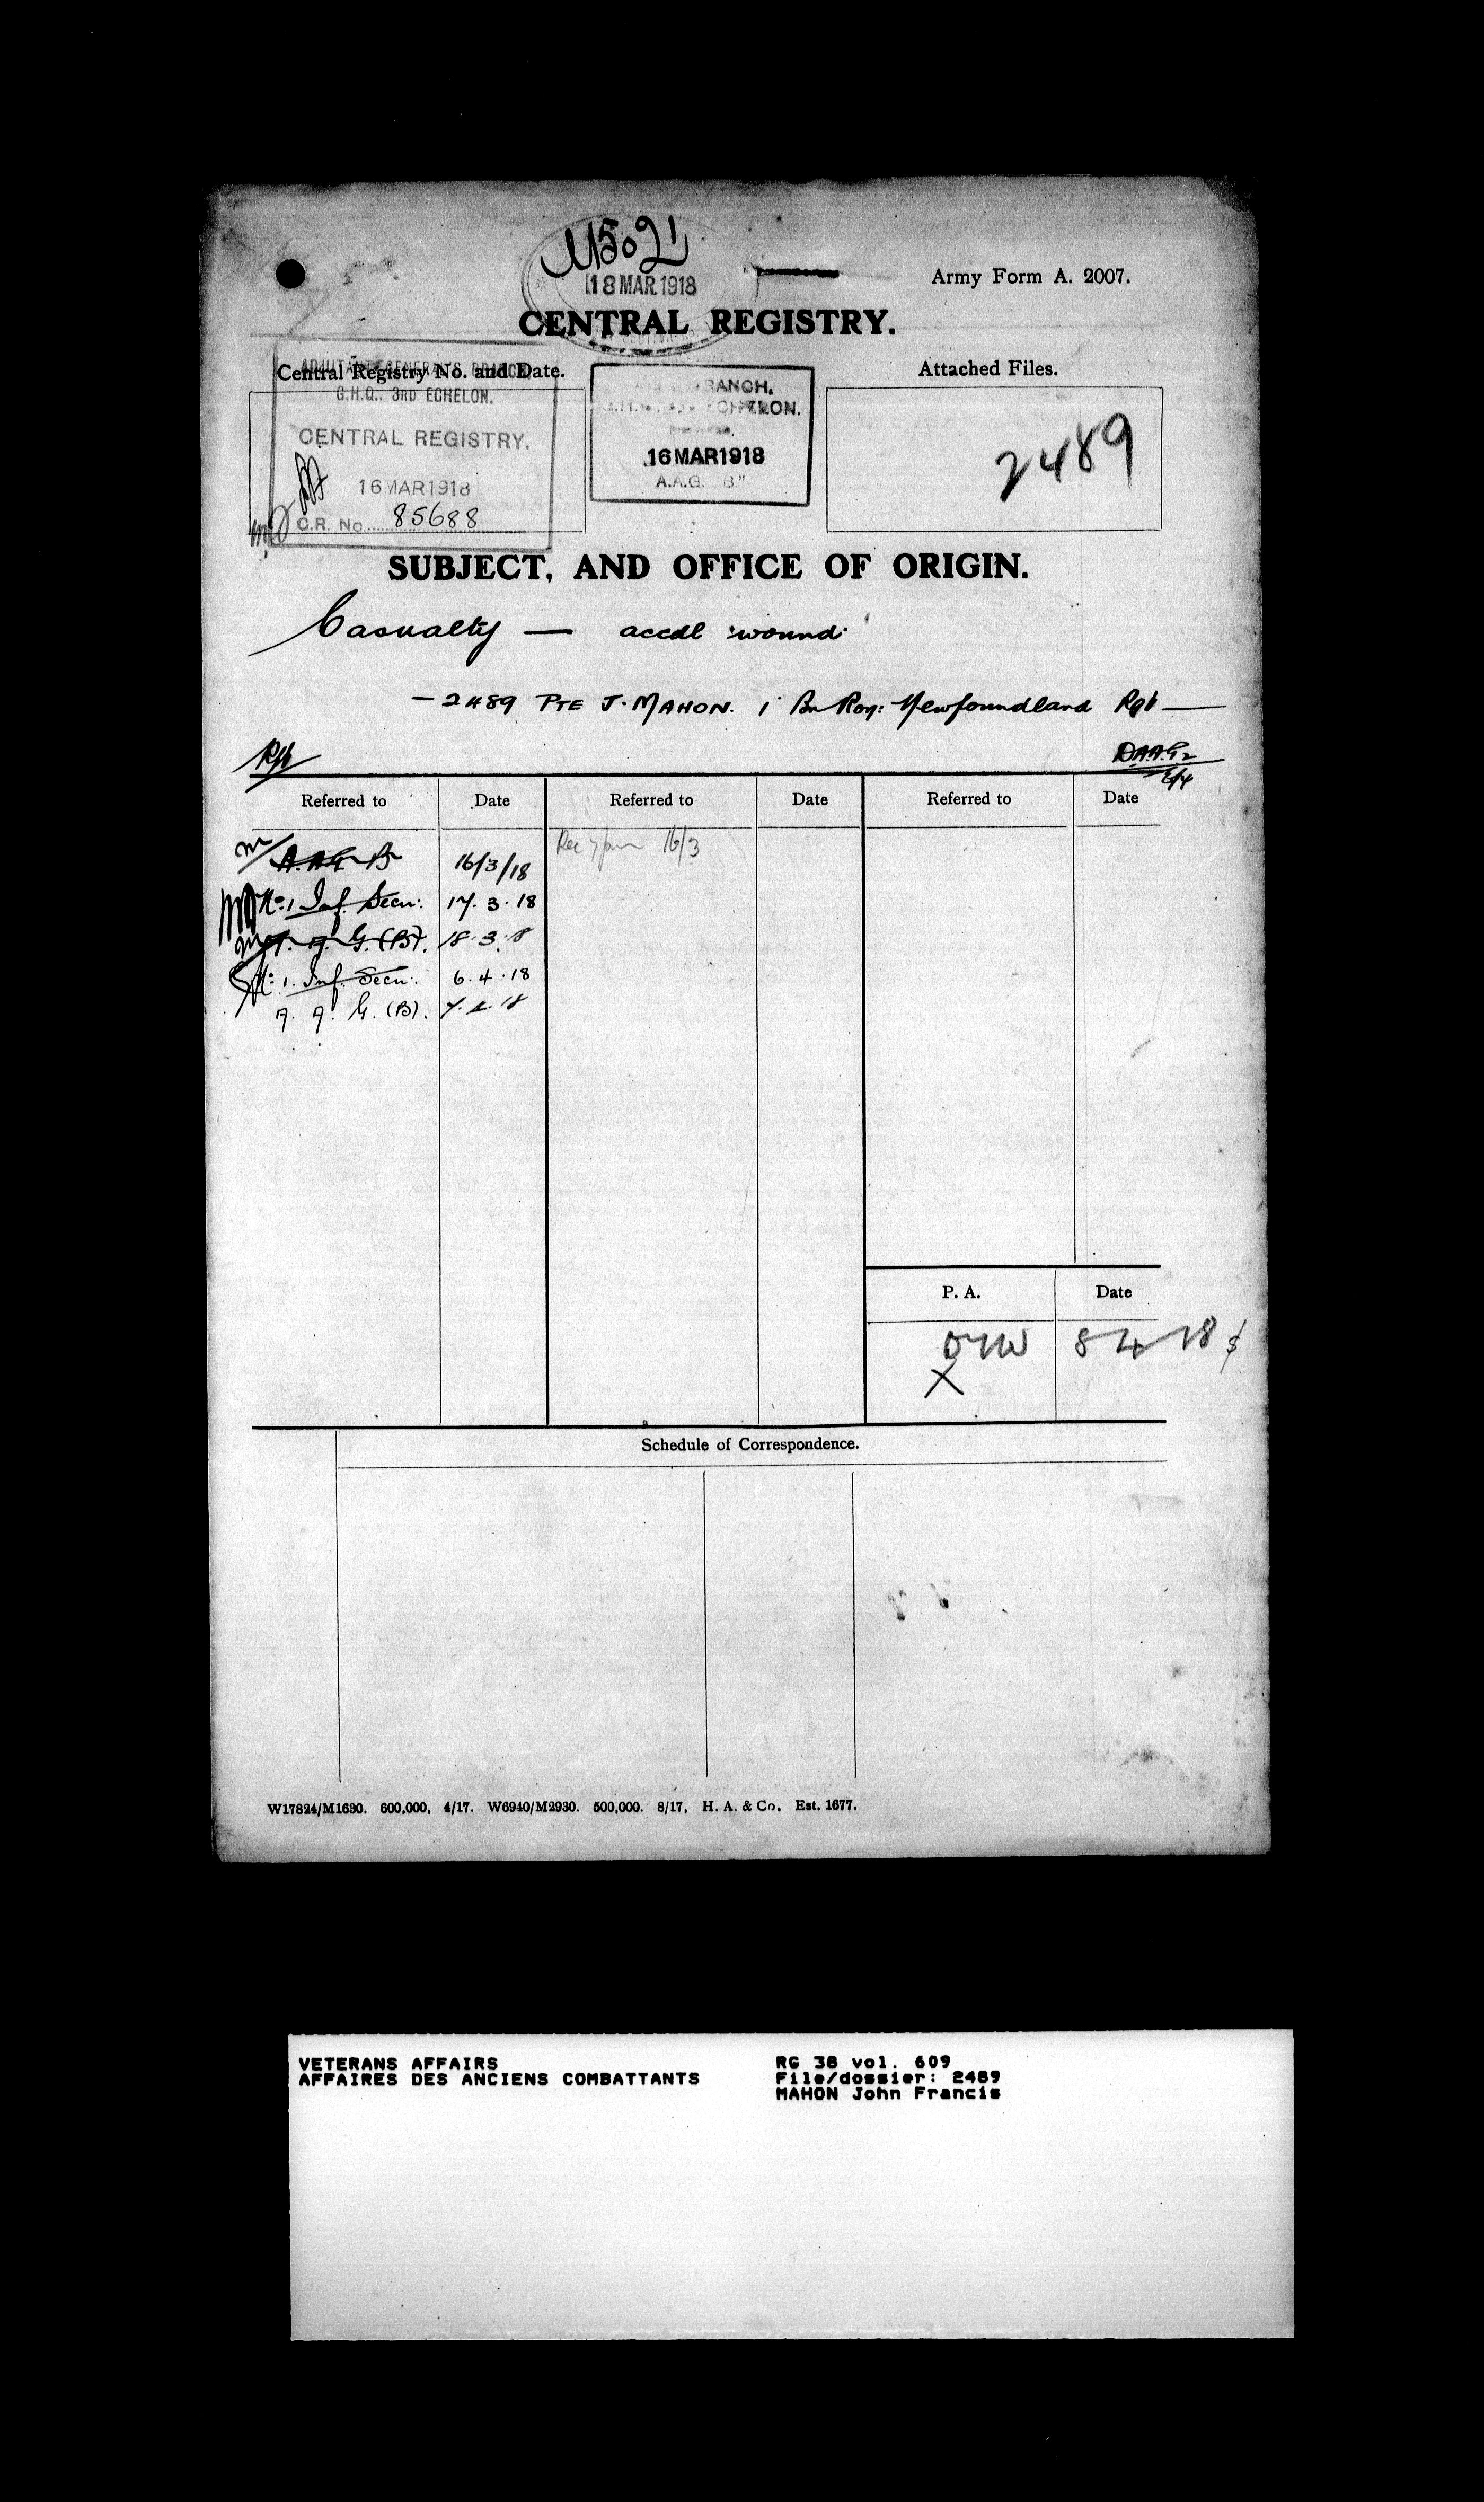 M5021
18 MAR. 1918
Army Form A. 2007.
CENTRAL REGISTRY.
Central Registry No. and Date.
Attached Files.
ADJUTANT GENERAL'S BRANCH,
G.H.Q., 3RD ECHELON.
CENTRAL REGISTRY.
16 MAR 1918
C.R. No. 85688
BRANCH,
ECHELON.
16 MAR 1918
A.A.G. "B."
2489
SUBJECT, AND OFFICE OF ORIGIN.
Casualty — accdl wound
— 2489 PTE J. MAHON. 1 Bn Roy: Newfoundland Rgt —
D.A.A.G.
Referred to Date Referred to Date Referred to Date
A.A.G. B 16/3/18
16/3
No. 1 Inf. Secn. 17.3.18
A. A. G. (B). 18.3.18
No. 1. Inf. Secn. 6.4.18
A. A. G. (B). 7.4.18
P. A. Date
8 4 18
X
Schedule of Correspondence.
W17824/M1630. 600,000. 4/17. W6940/M2930. 500,000. 8/17. H. A. & Co. Est. 1677.
VETERANS AFFAIRS
AFFAIRES DES ANCIENS COMBATTANTS
RG 38 vol. 609
File/dossier: 2489
MAHON John Francis